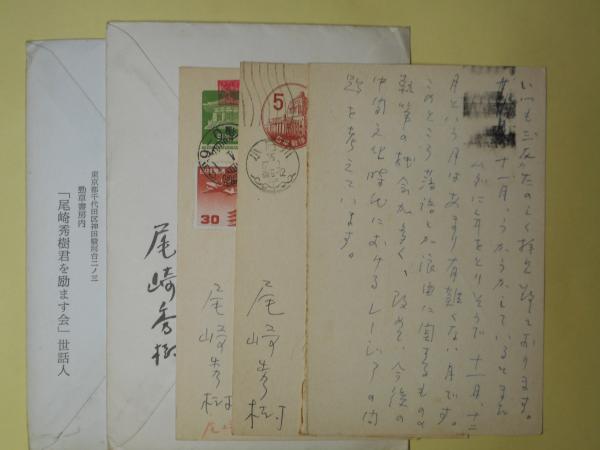 いつも三友たのしく拝見致しております。
十一月、うかうかしているとまた
にとしをとりそうで十一月、十二
月という月はあまり有難くない月です。
このところ落語とか浪曲に関するものの
執筆の機会が多く、改めて、今後の
中間文化時代におけるレージュアの問
題を考えています。
5
日本郵便
尾崎秀樹
30
尾崎秀樹
尾崎秀樹
東京都千代田区神田駿河台二ノ三
勁草書房内
「尾崎秀樹君を励ます会」世話人